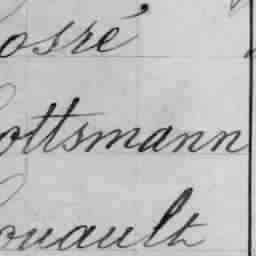 osré
ottsmann
ouault